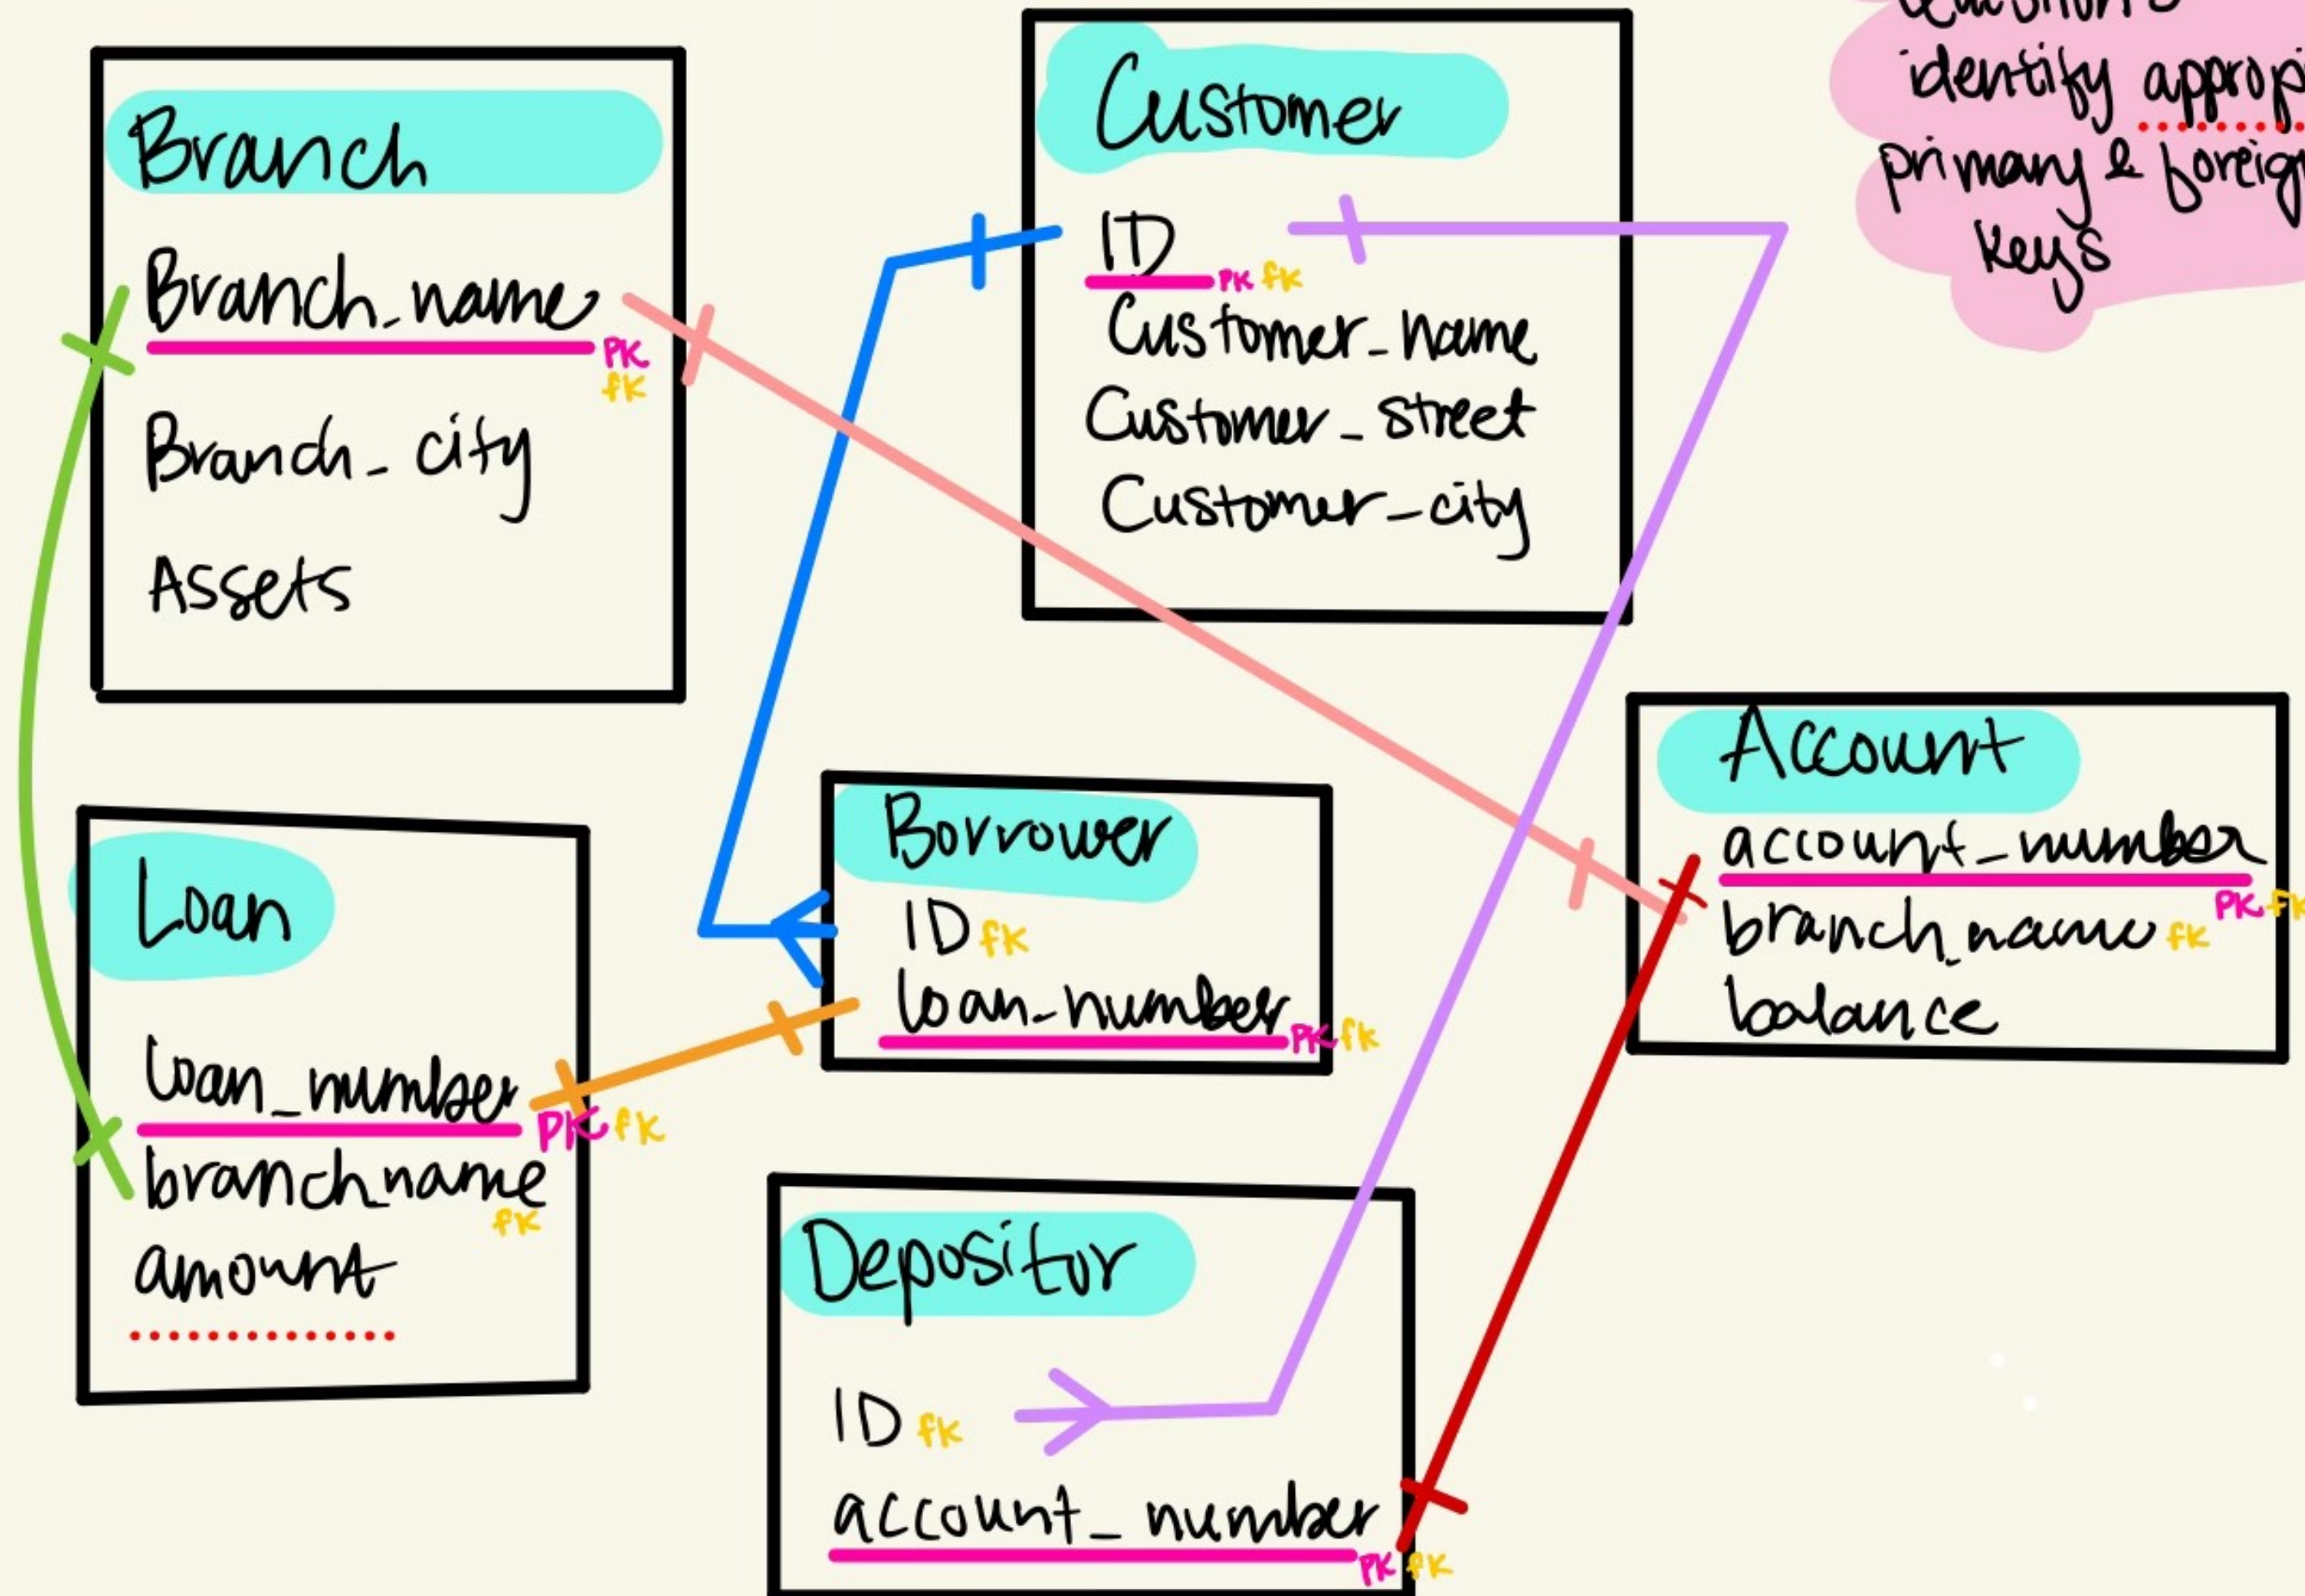 Branch
Branch_name PK
fK
Branch_city
Assets
Customer
ID PK fK
Customer_name
Customer_street
Customer_city
identify
primary & 
keys
Loan
loan_number PK fK
branch_name
fK
amount
Borrower
ID fK
loan_number PK fK
Account
account_number
PK fK
branch_name fK
balance
Depositor
ID fK
account_number
PK fK